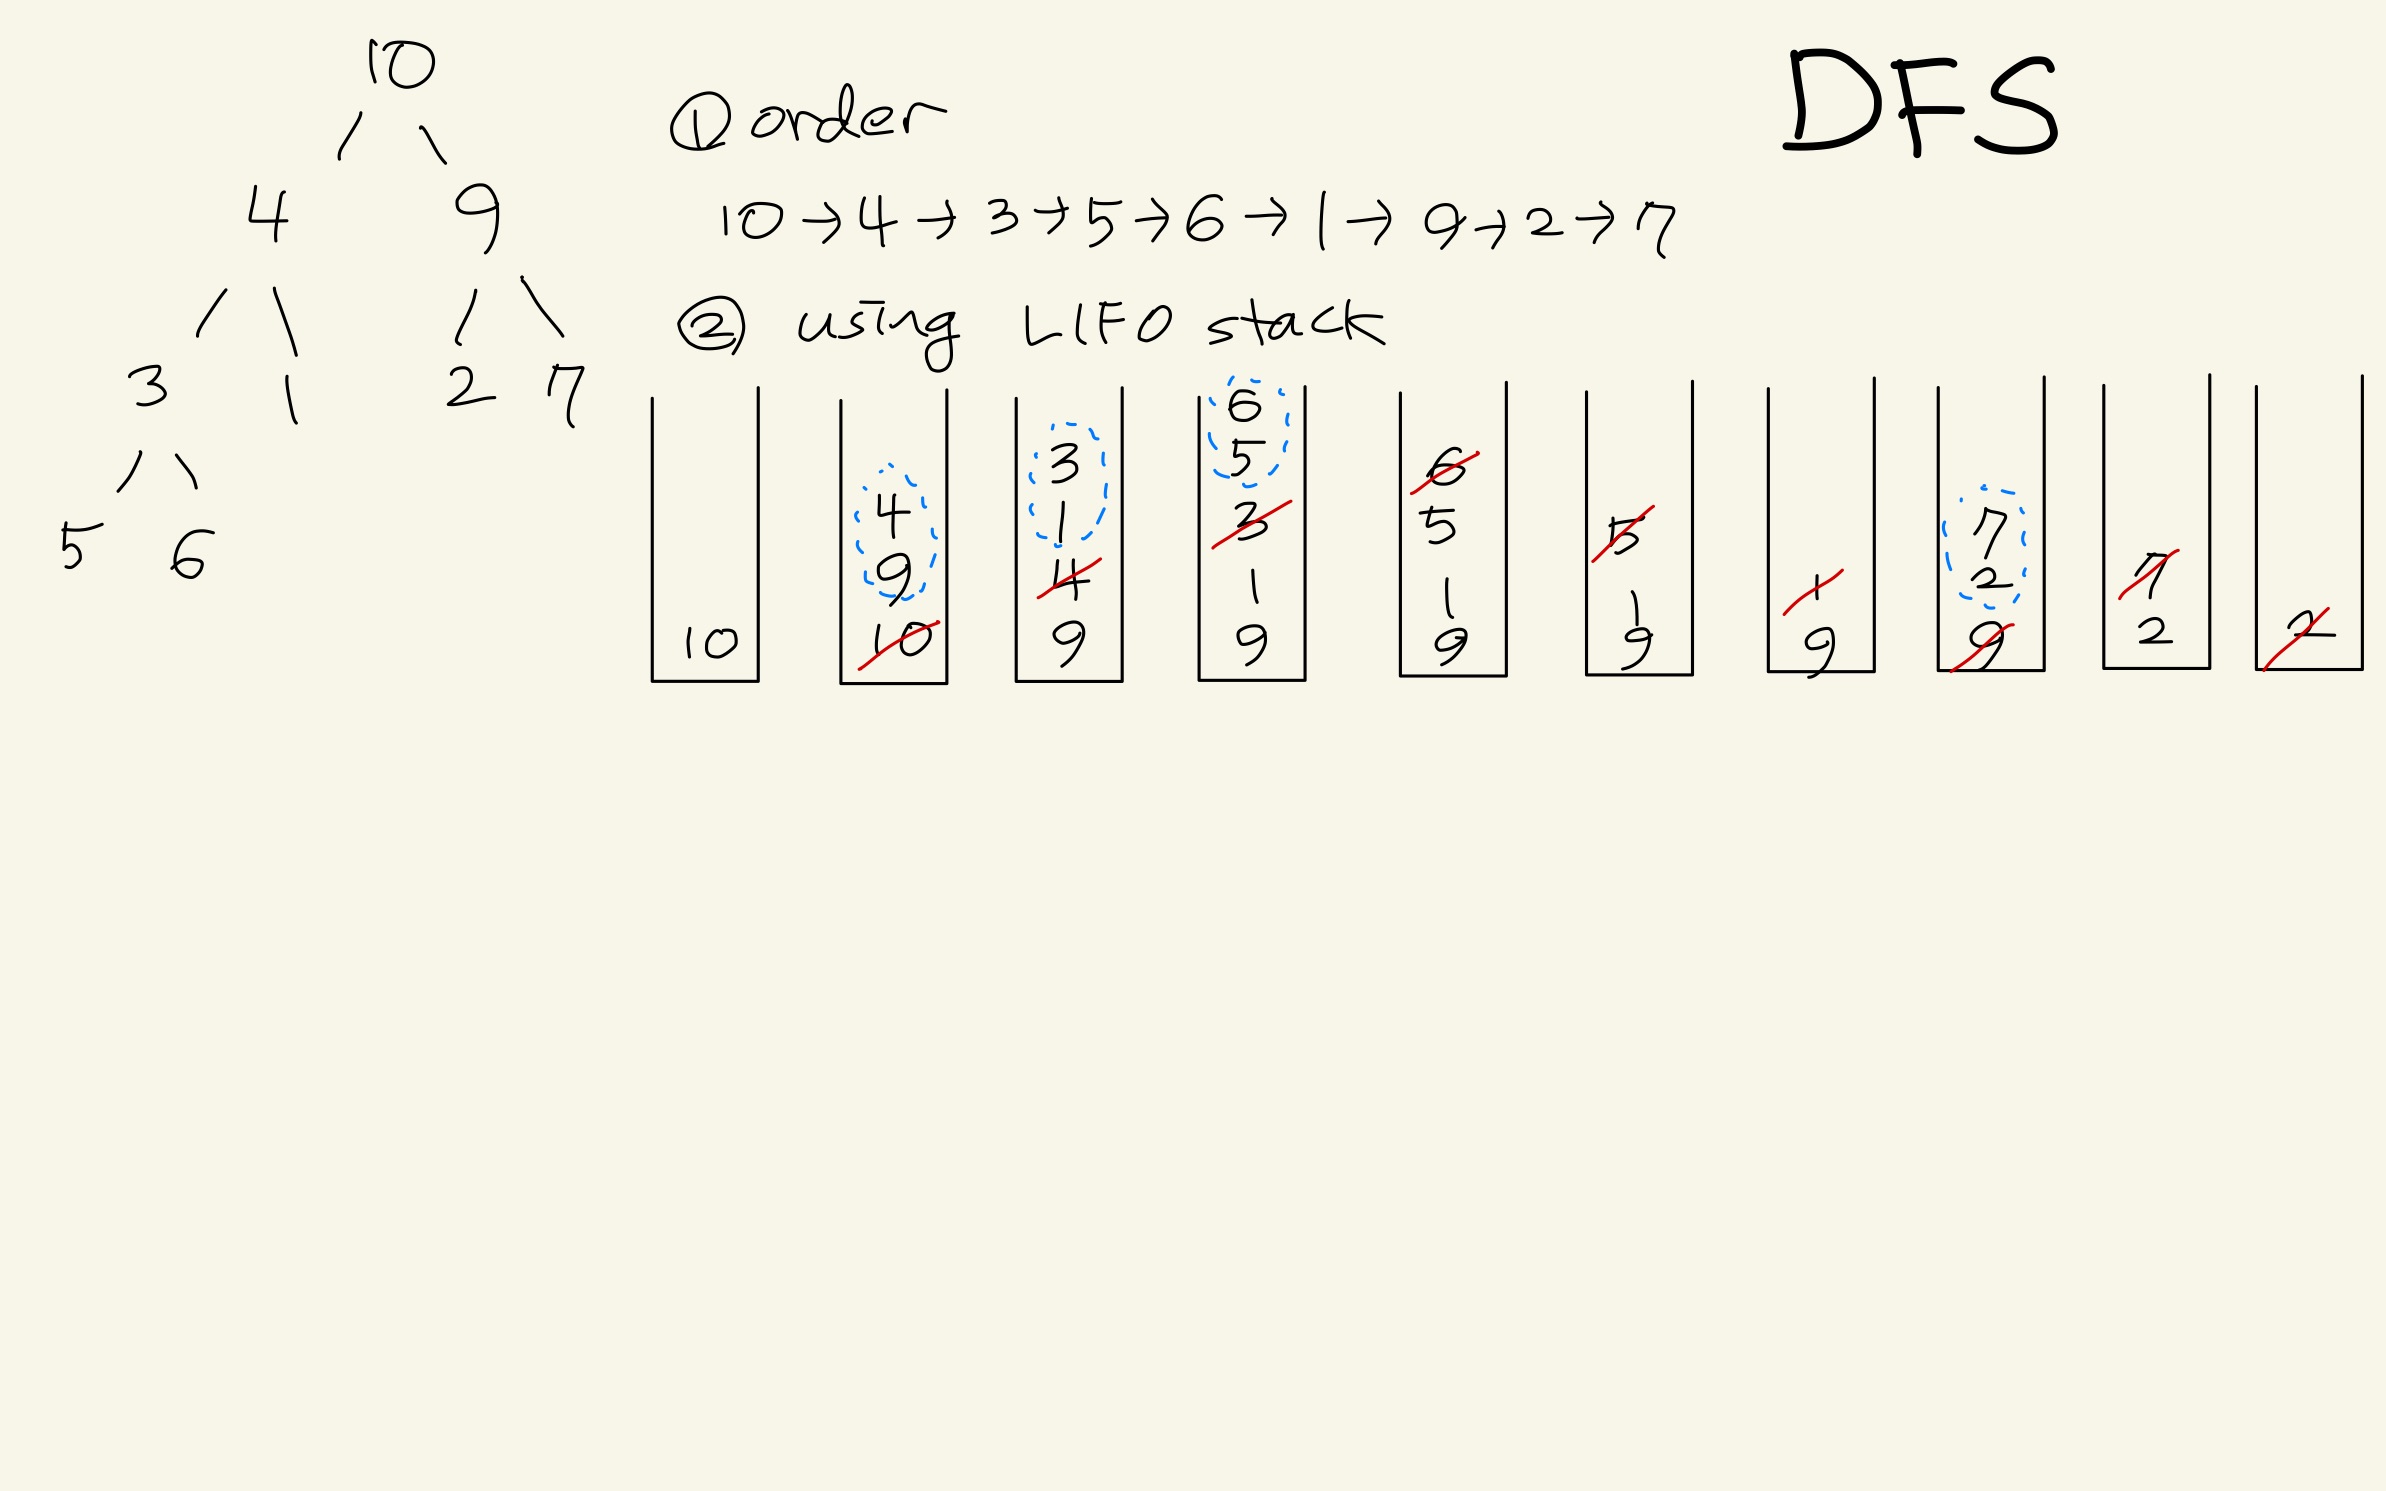 DFS
10
4 9
3 1 2 7
5 6
① order
10→4→3→5→6→1→9→2→7
② using LIFO stack
10
4
9
10
3
1
4
9
6
5
3
1
9
6
5
1
9
5
1
9
1
9
7
2
9
7
2
2